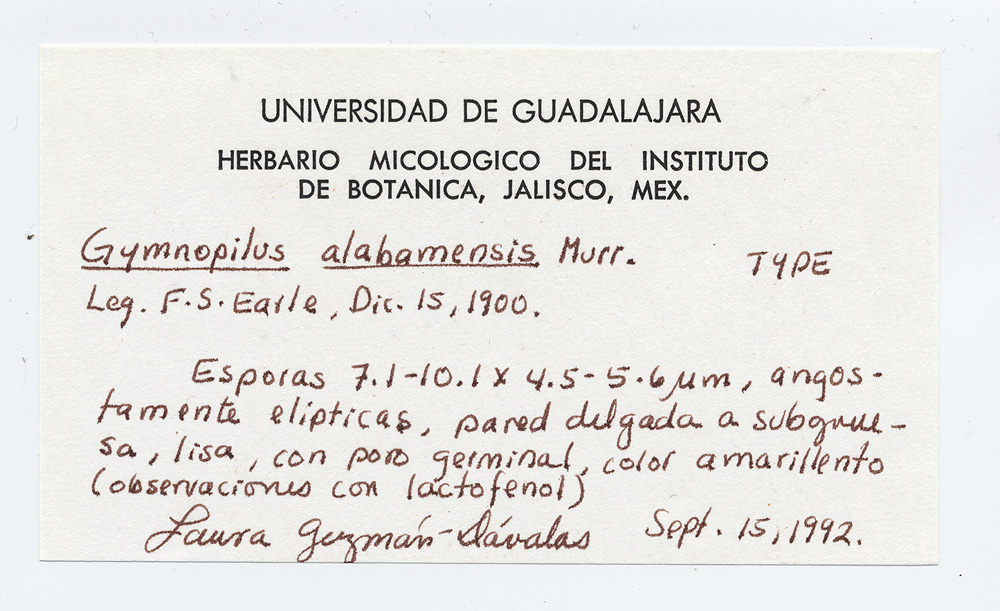 UNIVERSIDAD DE GUADALAJARA
HERBARIO MICOLOGICO DEL INSTITUTO
DE BOTANICA, JALISCO, MEX.
Gymnopilus alabamensis Murr. TYPE
Leg. F.S. Earle, Dic. 15, 1900.
Esporas 7.1-10.1 x 4.5-5.6 µm, angos-
tamente elipticas, pared delgada a subgrue-
sa, lisa, con poro germinal, color amarillento
(observaciones con lactofenol)
Laura Guzmán-Dávalos Sept. 15, 1992.